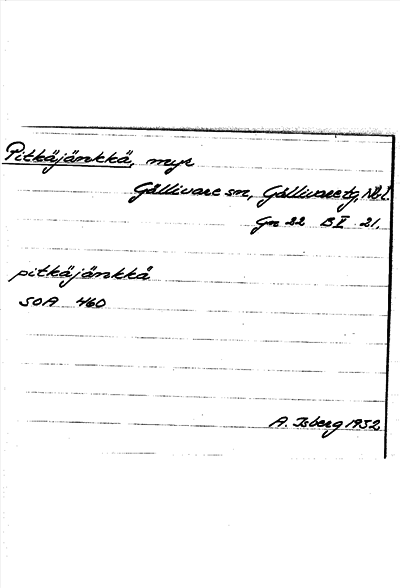 Pitkäjänkkä, myr
Gällivare sn, Gällivare tg, Nbl.
Gn 22 B I 21.
pitkäjänkkä
SOA 460
A. Isberg 1932